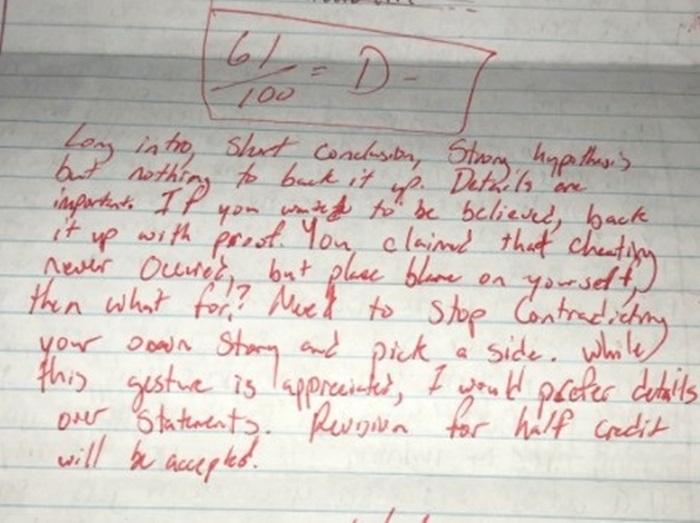 61
/100 = D-
Long intro, short conclusion, Strong hypothesis
but nothing to back it up. Details are
important. If you wanted to be believed, back
it up with proof. You claimed that cheating
never occured, but place blame on yourself,
then what for? Need to stop contradicting
your own story and pick a side. While
this gesture is appreciated, I would prefer details
over statements. Revision for half credit
will be accepted.